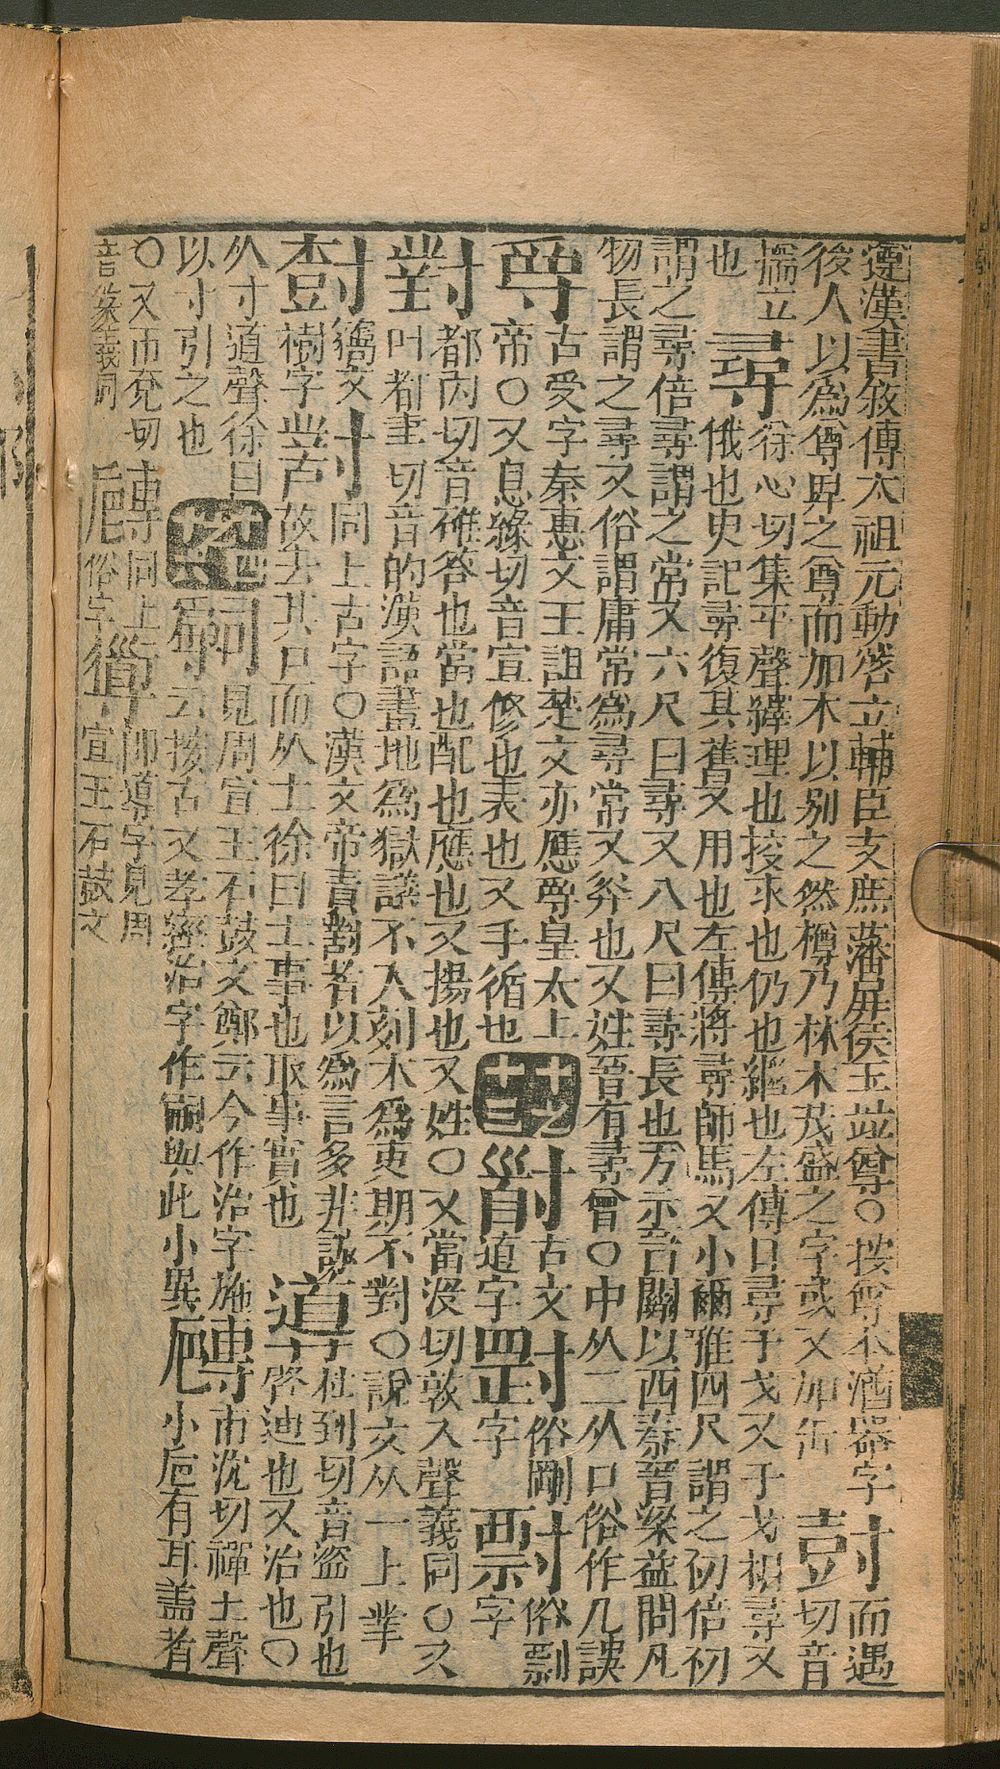 遵漢書敘傳太祖元動啓立輔臣支庶藩屏侯王竝尊○按尊本酒器字𡬾而遇
後人以爲尊卑之尊而加木以別之然樽乃林木茂盛之字或又加缶 切音
擩立 尋徐心切集平聲繹理也挍求也仍也繼也左傳日尋干戈又于戈相尋又
也 俄也史記尋復其舊又用也左傳蔣尋師焉又小爾雅四尺謂之仞倍仞
謂之尋倍尋謂之常又六尺曰尋又八尺曰尋長也方示言關以西秦晉梁益問凡
物長謂之尋又俗謂庸常爲尋常又夰也又姓晉有尋曾○中从二从口俗作几誤
古受字秦惠文王詛楚文亦應𤔌皇太上 十之十三 古文 俗剛 俗剽
帝○又息緣切音宣修也表也又手循也 道字 字 字
對都內切音碓答也當也配也應也又揚也又姓○又當沒切敦入聲義同○又
叫都畫切音的漢語畫地爲獄議不入刻木爲吏期不對○說文从丵
籒文 同上古字○漢文帝責對者以爲言多非誠 導杜到切音盜引也
樹字 故去其口而从士徐曰士事也取事實也 聲迪也又治也○
从寸道聲徐曰 十四 見周宣王石鼓文鄭云今作治字施 專市沇切禪上聲
以寸引之也 十六 云按古文孝經治字作嗣與此小異 小巵有耳盖者
○又而兗切 同上 卽導字見周
音緣義同 俗字 宣王石鼓文